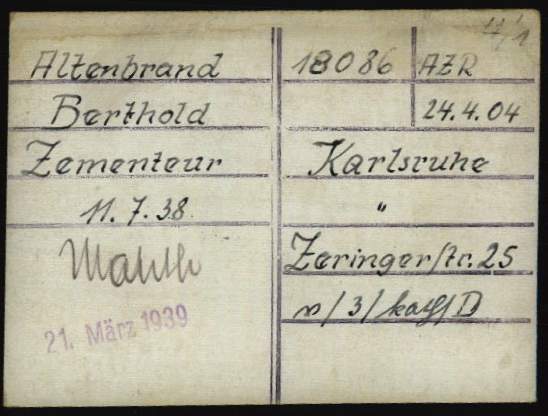 4/1
Altenbrand 18086 AZR
Berthold 24.4.04
Zementeur Karlsruhe
11.7.38. "
Zeringerstr. 25
v/3/kath/D
21. März 1939